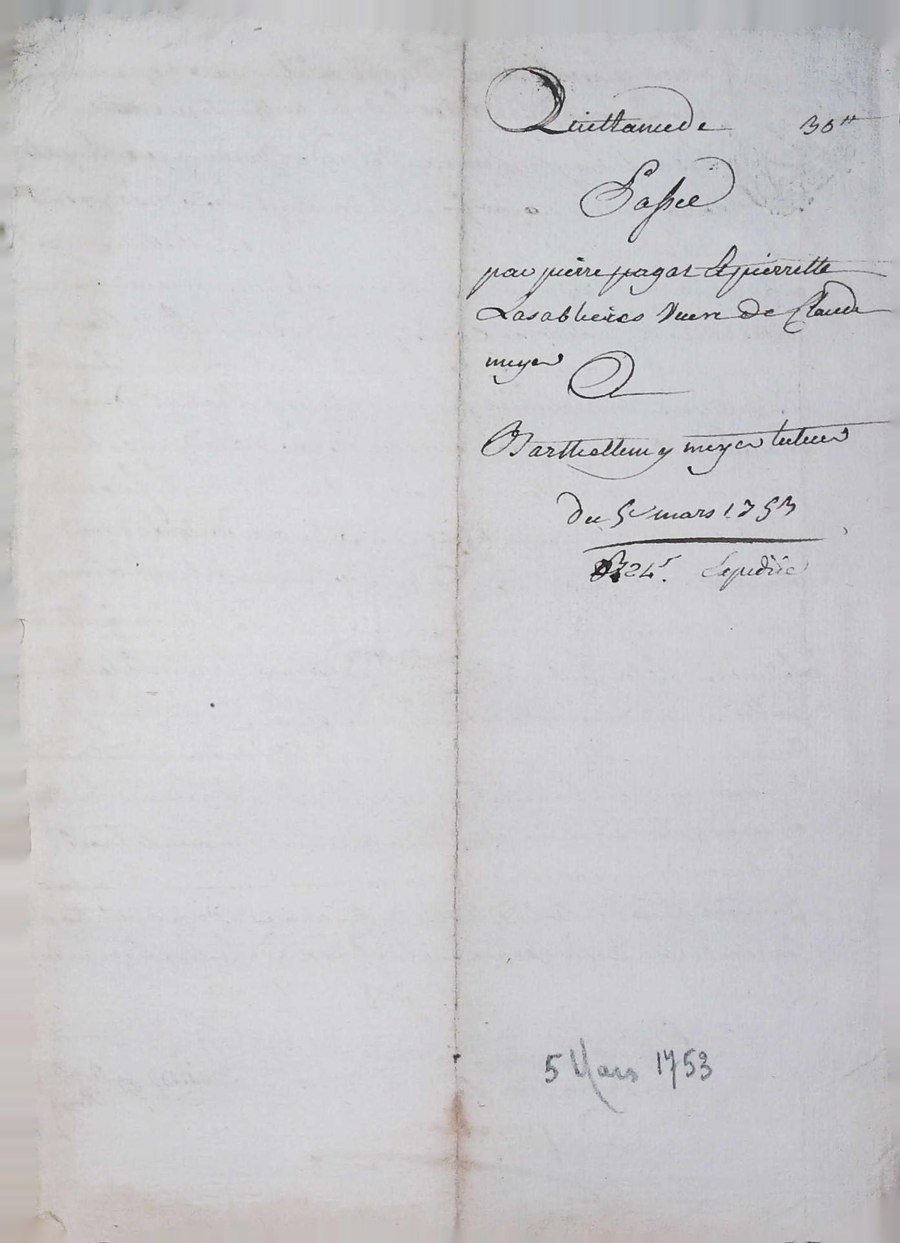 Quittance de 30ᵗᵗ
Passée
par pierre pagat et pierrette
Lasablieres veuve de Claude
meyer
A
Barthellemy meyer tuteur
du 5ᵉ mars 1753
24ˢ. Expédiée
5 Mars 1753